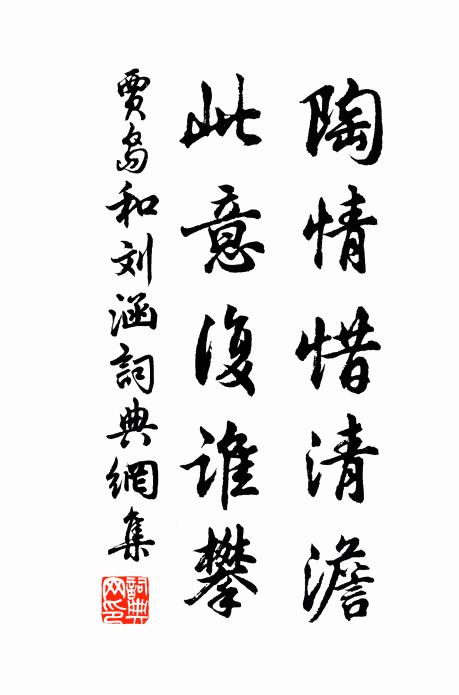 陶情惜清澹
此意復誰攀
賈島和刘涵詞典網集
詞典网印